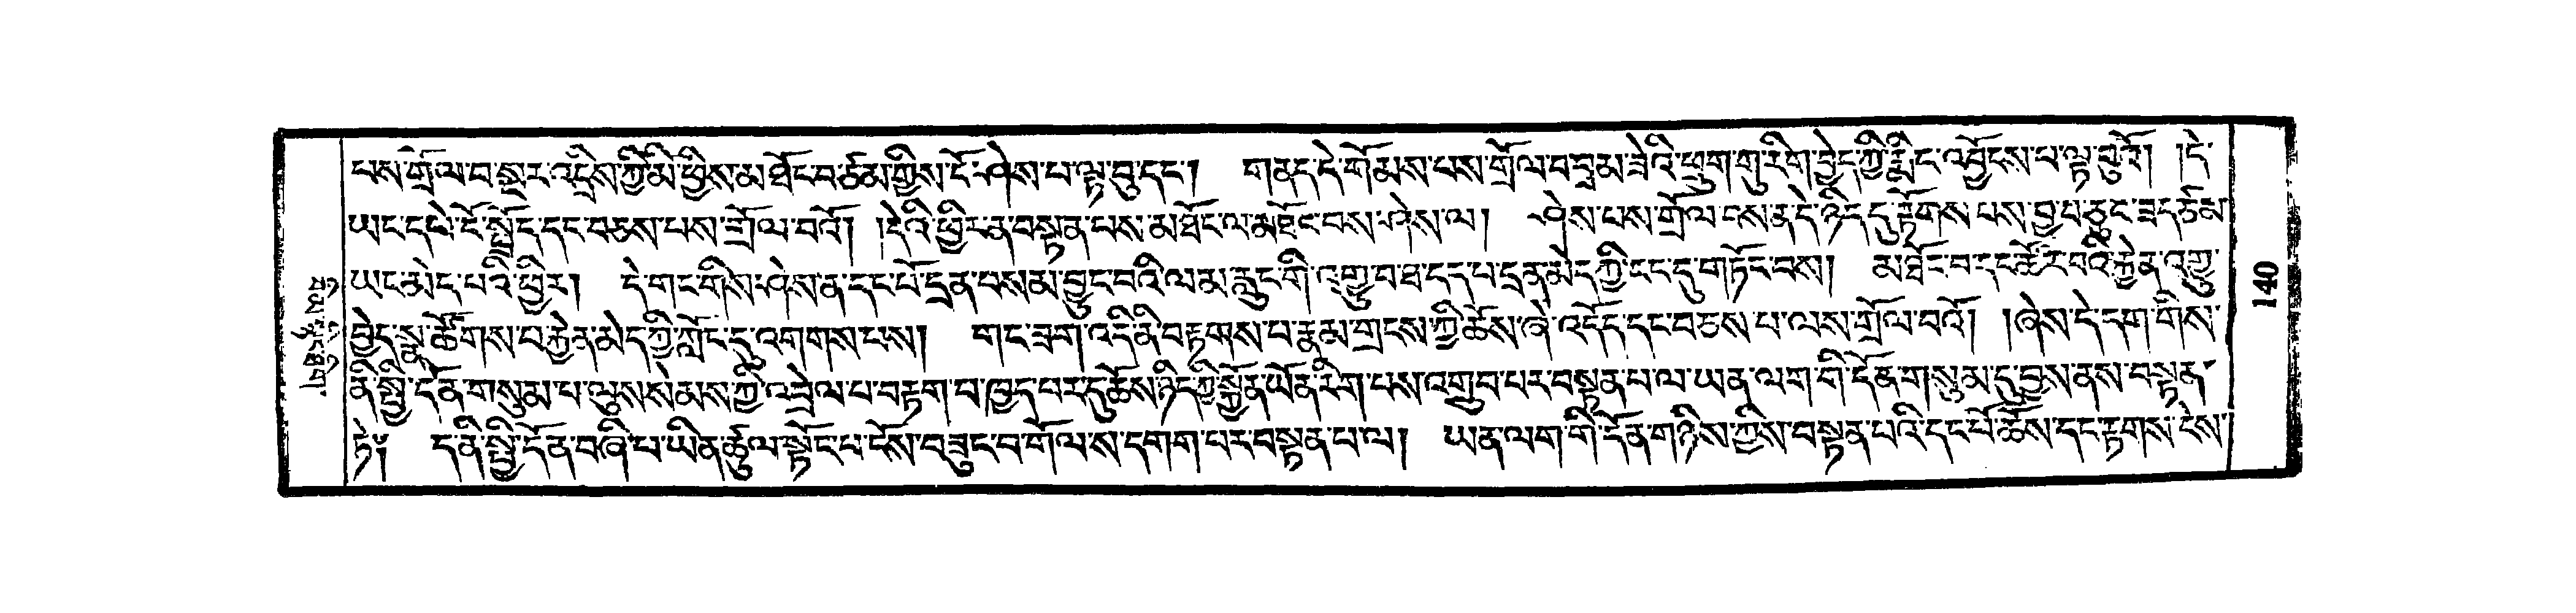 པས་གྲོལ་བ་སྔར་འདྲིས་ཀྱི་མི་ཕྱིས་མ་ཐོང་བ་ཙམ་གྱིས་ངོ་ཤེས་པ་ལྟ་བུ་དང་། གནད་དེ་གོམས་པས་གྲོལ་བ་བྲམ་ཟེའི་ཕྲུག་གུ་རིག་བྱེད་ཀྱི་རྨིང་འབྱོངས་པ་ལྟ་བུའོ། །དེ་
ཡང་དཔེ་ངོ་སྤྲོད་དང་བཅས་པས་གྲོལ་བའོ། །དེའི་ཕྱིར་ན་བསྟན་པས་མཐོང་ལ་མཐོང་བས་ཤེས་ལ། ཤེས་པས་གྲོལ་ངས་ན་དེ་ཉིད་དུ་རྟོགས་པས་བྱ་བ་ཅུང་ཟད་ཙམ་
ཡང་མེད་པའི་ཕྱིར། དེ་གང་གིས་ཤེས་ན་དང་པོ་དྲན་བསམ་བྱུང་བའི་ལམ་རླུང་གི་འགྱུ་བ་ཐ་དད་པ་དྲན་མེད་ཀྱི་ངང་དུ་གཏོད་བས། མཐོང་བ་དང་ཚོར་བའི་རྐྱེན་འགྱུ་
བྱེད་སྣ་ཚོགས་པ་རྐྱེན་མེད་ཀྱི་ཀློང་དུ་འགགས་པས། གང་ཟག་འདི་ནི་བརྟགས་པ་རྣམ་གྲངས་ཀྱི་ཆོས་ཞེ་འདོད་དང་བཅས་པ་ལས་གྲོལ་བའོ། །ཞེས་དེ་དག་གིས་
ནི་སྤྱི་དོན་གསུམ་པ་ལུས་སེམས་ཀྱི་འབྲེལ་པ་བརྟག་པ་ཁྱད་པར་དུ་ཆོས་ཉིད་ཀྱི་སྐྱོན་ཡོན་རིག་པས་འགྲུབ་པར་བསྟན་པ་ལ་ཡན་ལག་གི་དོན་གསུམ་དུ་བྱས་ནས་བསྟན་
ཏེ༔ ད་ནི་སྤྱི་དོན་བཞི་པ་ཡིན་ཚུལ་སྟོང་པ་ངོས་བཟུང་བ་གོལ་ས་དགག་པར་བསྟན་པ་ལ། ཡན་ལག་གི་དོན་གཉིས་ཀྱིས་བསྟན་པའི་དང་པོ་ཆོས་དང་རྟགས་ངེས་